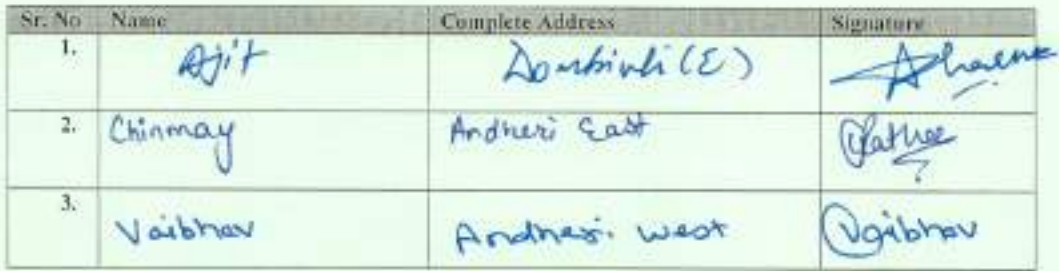 Sr. No Name Complete Address Signature
1. Ajit Dombivli (E)
2. Chinmay Andheri East Rathee
3. Vaibhav Andheri West Vaibhav